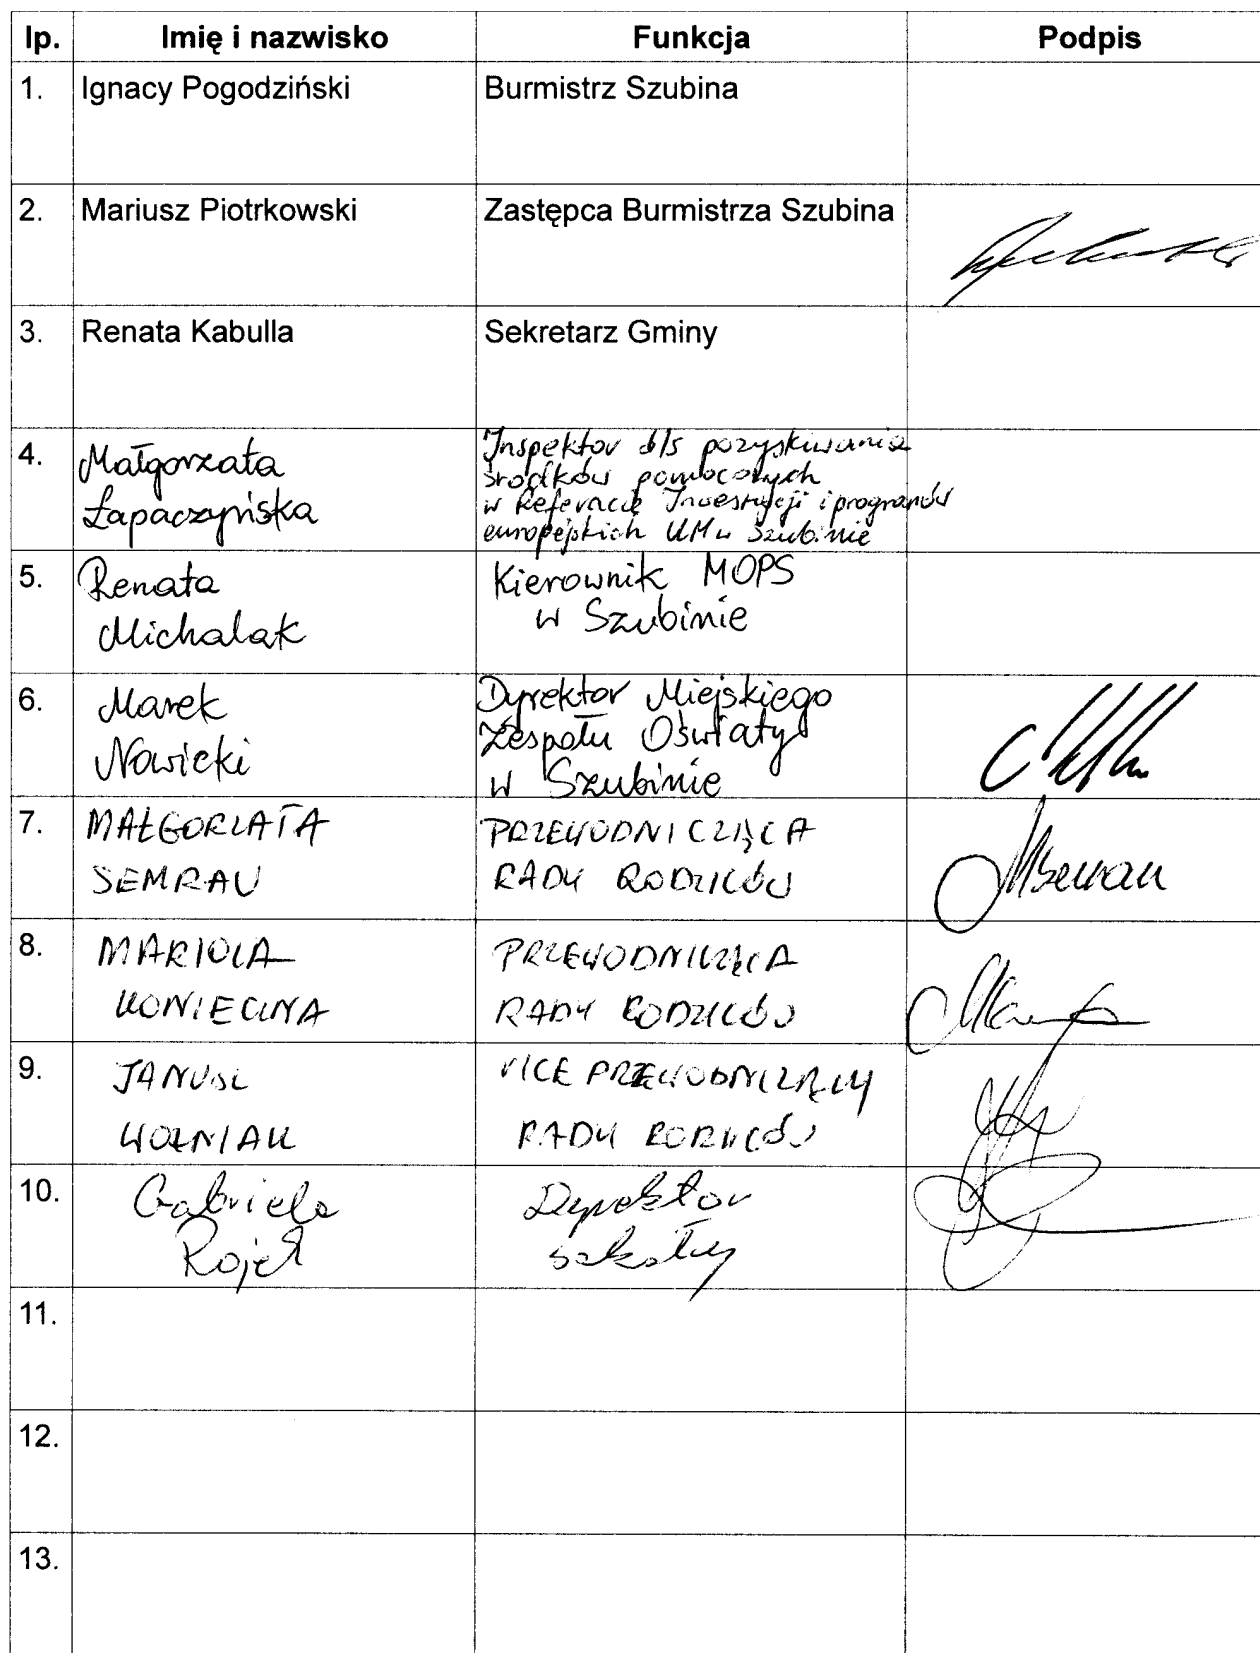 lp. Imię i nazwisko Funkcja Podpis
1. Ignacy Pogodziński Burmistrz Szubina
2. Mariusz Piotrkowski Zastępca Burmistrza Szubina
3. Renata Kabulla Sekretarz Gminy
4. Małgorzata
Łapaczyńska
Inspektor d/s pozyskiwania
środków pomocowych
w Referacie Inwestycji i programów
europejskich UM w Szubinie
5. Renata
Michalak
Kierownik MOPS
w Szubinie
6. Marek
Nowicki
Dyrektor Miejskiego
Zespołu Oświaty
w Szubinie
7. MAŁGORZATA
SEMRAU
PRZEWODNICZĄCA
RADY RODZICÓW
8. MARIOLA
KONIECZNA
PRZEWODNICZĄCA
RADY RODZICÓW
9. JANUSZ
WOŹNIAK
VICE PRZEWODNICZĄCY
RADY RODZICÓW
10. Gabriela
Dyrektor
szkoły
11.
12.
13.